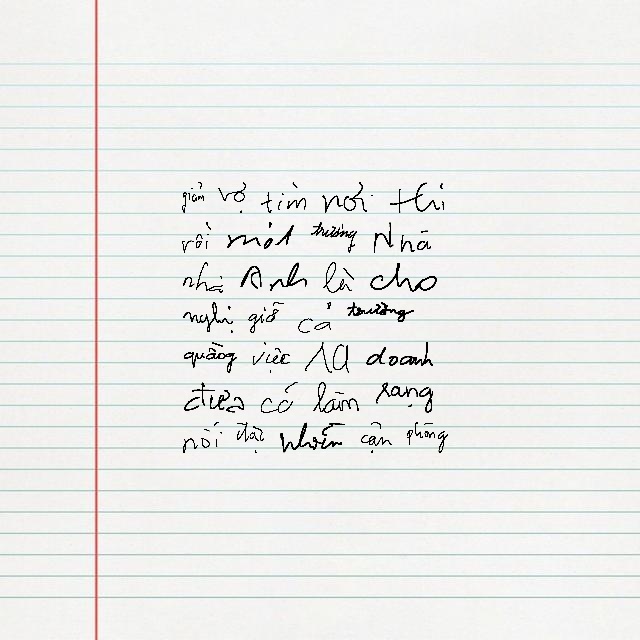 giản vợ tìm nơi thi
rồi một trường Nhã
nhà Anh là cho
nghị giỗ cả trường
quãng việc là doanh
đưa có làm rạng
nói đặc nhiên cận phòng